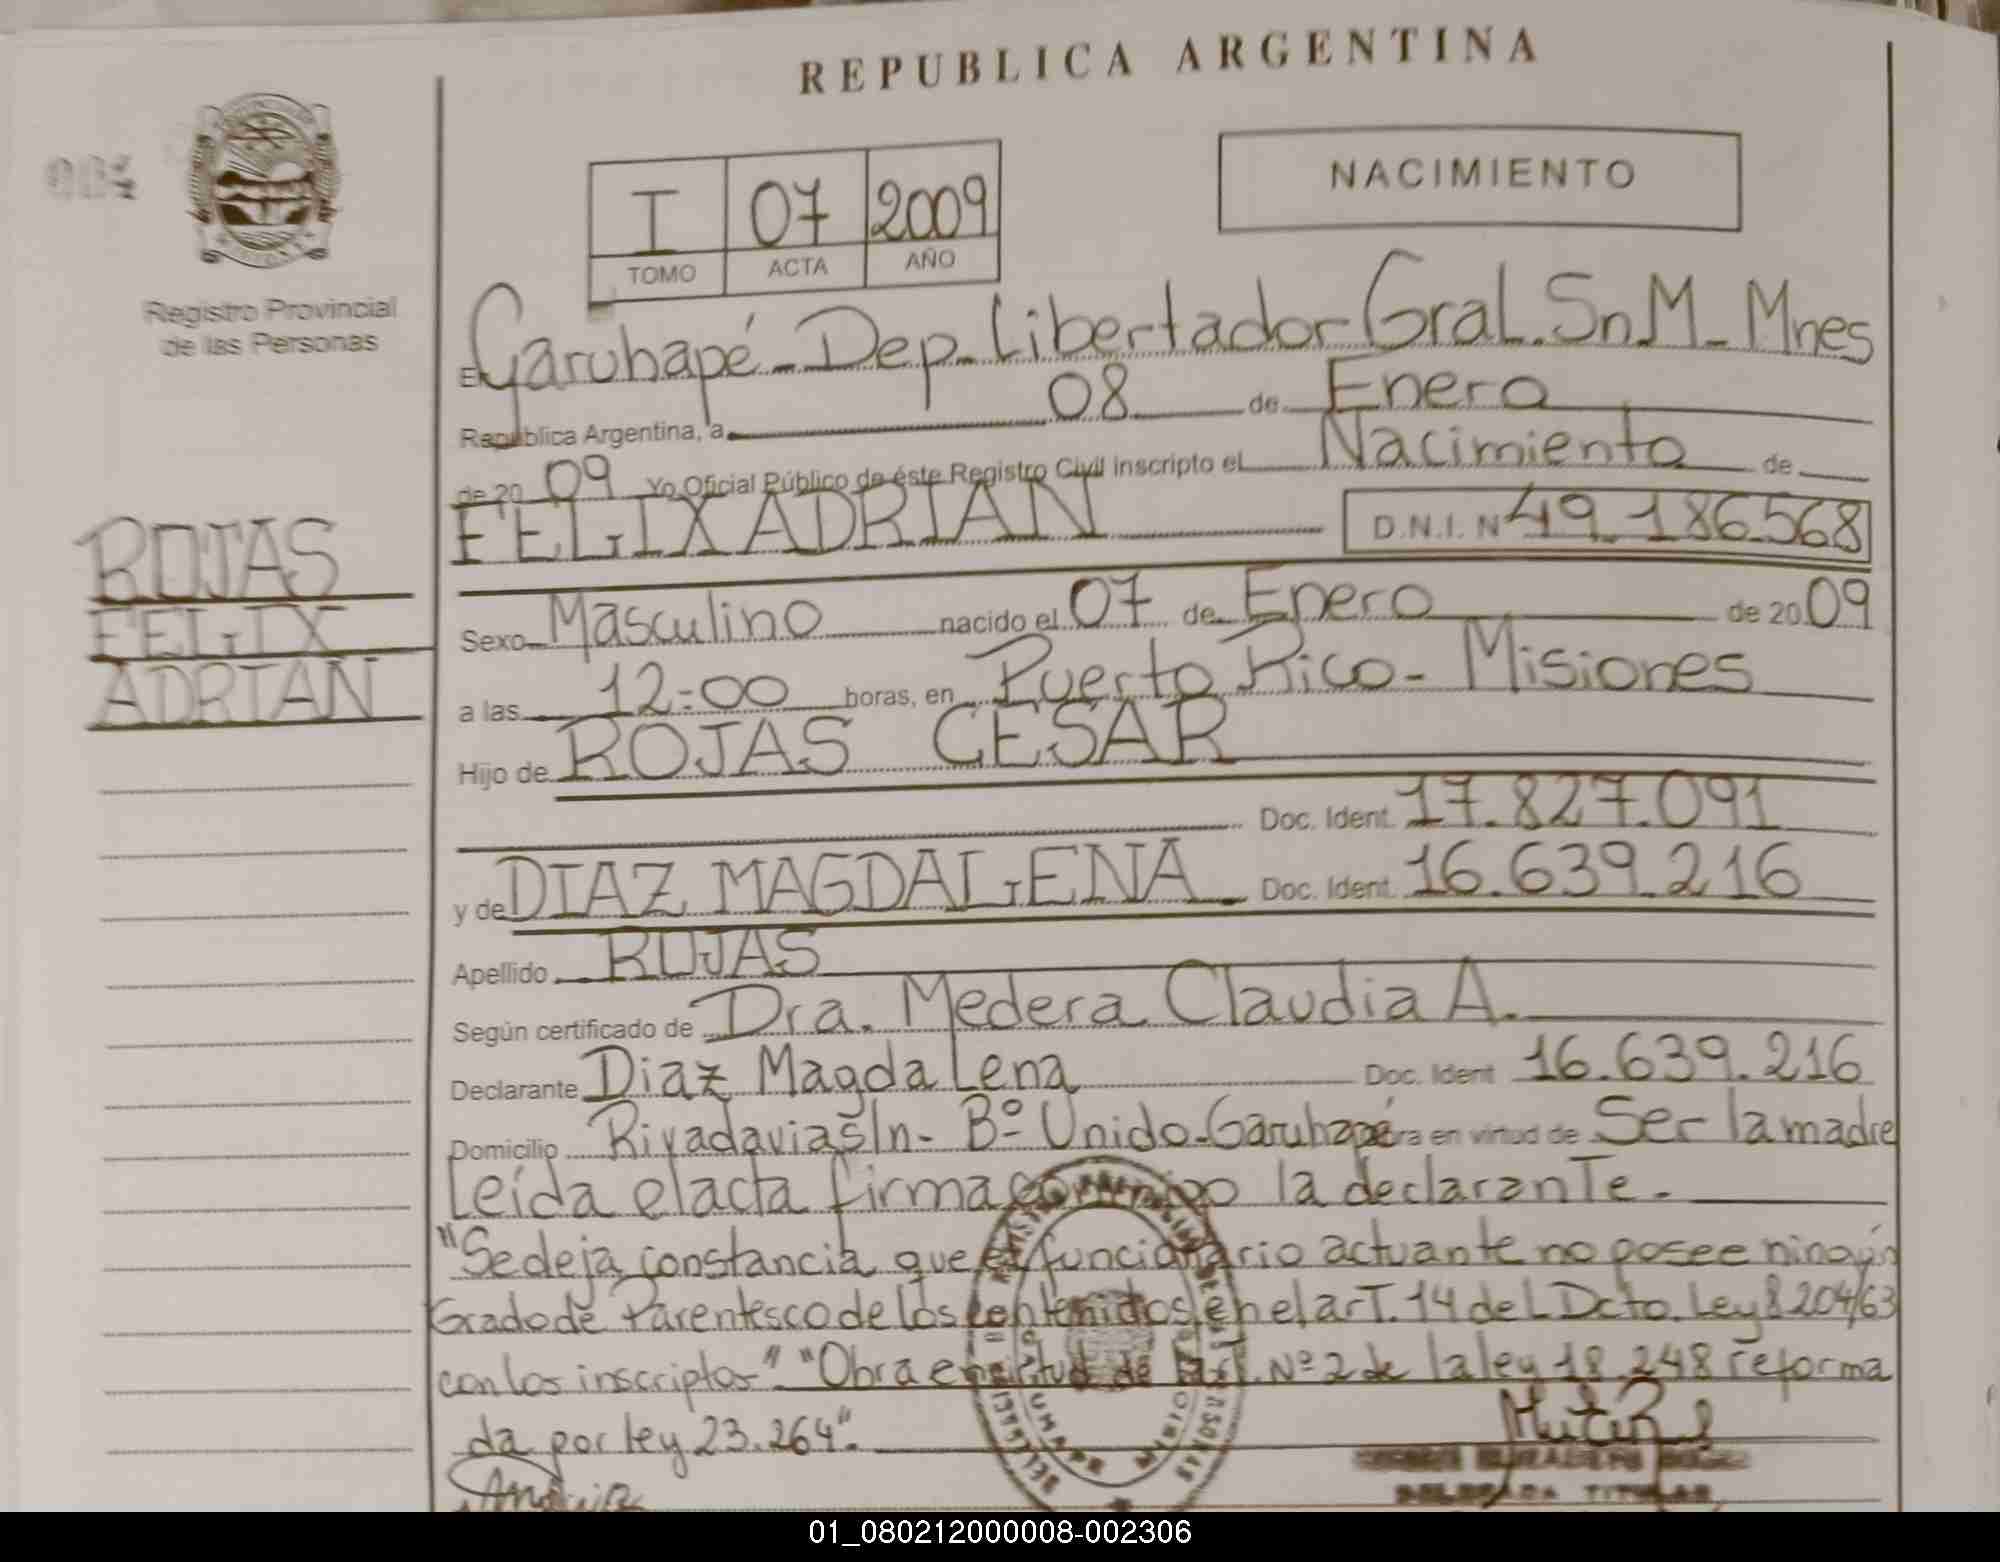 REPUBLICA ARGENTINA
NACIMIENTO
I 07 2009
TOMO ACTA AÑO
Registro Provincial
de las Personas
En Garuhapé - Dep. Libertador Gral. Sn. M. - Mnes
República Argentina, a 08 de Enero
de 20 09 Yo Oficial Público de éste Registro Civil inscripto el Nacimiento de
FELIX ADRIAN D.N.I. N 49.186.568
ROJAS
FELIX
ADRIAN
Sexo Masculino nacido el 07 de Enero de 20 09
a las 12:00 horas, en Puerto Rico - Misiones
Hijo de ROJAS CESAR
Doc. Ident. 17.827.091
y de DIAZ MAGDALENA Doc. Ident. 16.639.216
Apellido ROJAS
Según certificado de Dra. Medera Claudia A.
Declarante Diaz Magdalena Doc. Ident 16.639.216
Domicilio Rivadavia s/n - Bº Unido - Garuhapé ra en virtud de Ser la madre
Leída el acta firma la declarante.
"Se deja constancia que el funcionario actuante no posee ningún
Grado de Parentesco de los contenidos en el art. 14 del Dcto. Ley 8204/63
con los inscriptos" "Obra en virtud de la art. Nº 2 de la ley 18.248 reforma
da por ley 23.264".
TITULAR
01_080212000008-002306